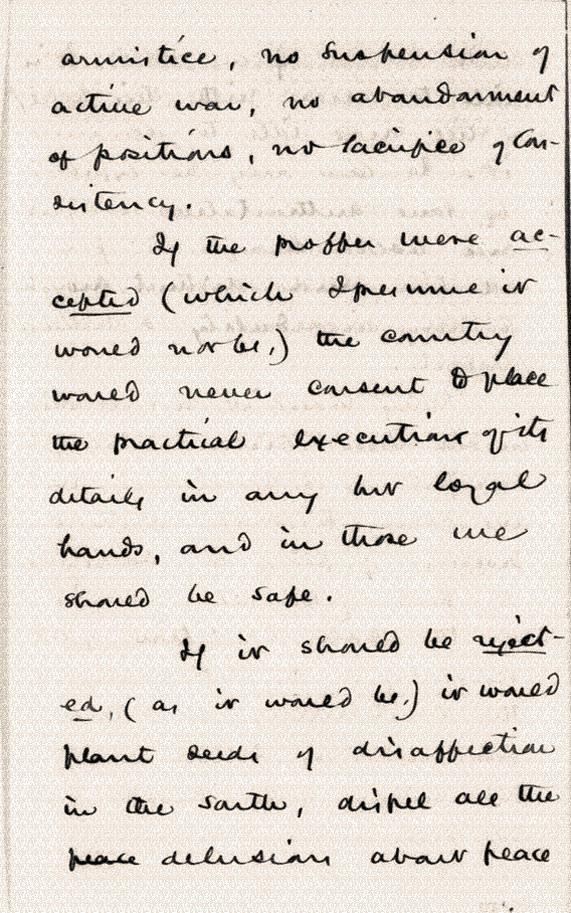 armistice, no suspension of
active war, no abandonment
of positions, no sacrifice of con-
sistency.
If the proffer were ac-
cepted (which I presume it
would not be,) the country
would never consent to place
the practical execution of its
details in any but loyal
hands, and in those we
should be safe.
If it should be reject-
ed, (as it would be,) it would
plant seeds of disaffection
in the south, dispel all the
peace delusions about peace